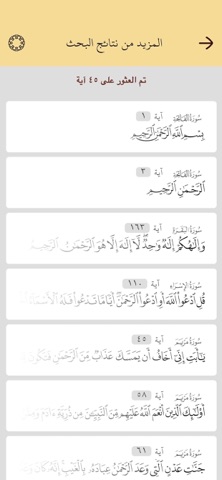 المزيد من نتائج البحث
تم العثور على ٤٥ آية
سُورَةُ الفَاتِحَةِ آية ١
بِسْمِ ٱللَّهِ ٱلرَّحْمَٰنِ ٱلرَّحِيمِ
سُورَةُ الفَاتِحَةِ آية ٣
ٱلرَّحْمَٰنِ ٱلرَّحِيمِ
سُورَةُ البَقَرَةِ آية ١٦٣
وَإِلَٰهُكُمْ إِلَٰهٌ وَٰحِدٌ لَّآ إِلَٰهَ إِلَّا هُوَ ٱلرَّحْمَٰنُ ٱلرَّحِيمُ
سُورَةُ الإِسۡرَاءِ آية ١١٠
قُلِ ٱدْعُوا۟ ٱللَّهَ أَوِ ٱدْعُوا۟ ٱلرَّحْمَٰنَ أَيًّا مَّا تَدْعُوا۟ فَلَهُ ٱلْأَسْمَآءُ
سُورَةُ مَرۡيَمَ آية ٤٥
يَٰٓأَبَتِ إِنِّىٓ أَخَافُ أَن يَمَسَّكَ عَذَابٌ مِّنَ ٱلرَّحْمَٰنِ فَتَكُونَ
سُورَةُ مَرۡيَمَ آية ٥٨
أُو۟لَٰٓئِكَ ٱلَّذِينَ أَنْعَمَ ٱللَّهُ عَلَيْهِم مِّنَ ٱلنَّبِيِّـۧنَ مِن ذُرِّيَّةِ ءَادَمَ
سُورَةُ مَرۡيَمَ آية ٦١
جَنَّٰتِ عَدْنٍ ٱلَّتِى وَعَدَ ٱلرَّحْمَٰنُ عِبَادَهُۥ بِٱلْغَيْبِ إِنَّهُۥ كَانَ